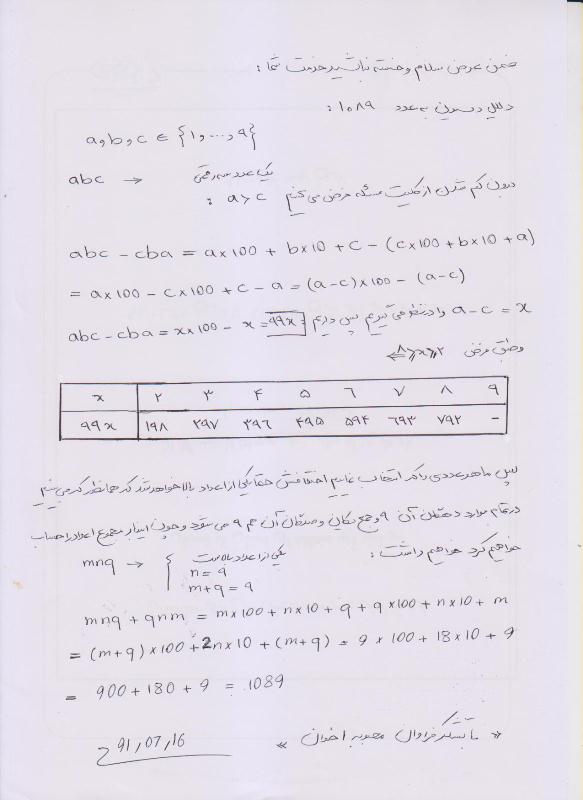 ضمن عرض سلام و خسته نباشید خدمت شما :
دلیل رسیدن به عدد ۱۰۸۹ :
a و b و c ∈ {۱, ..., ۹}
abc → یک عدد سه رقمی
بدون کم شدن از کلیت مسئله فرض می کنیم a > c :
abc - cba = a×100 + b×10 + c - (c×100 + b×10 + a)
= a×100 - c×100 + c - a = (a-c)×100 - (a-c)
a - c = x را در نظر می گیریم پس داریم : abc - cba = x×100 - x = 99x
وطبق فرض ۲≤x≤۸
x ۲ ۳ ۴ ۵ ۶ ۷ ۸ ۹
۹۹x ۱۹۸ ۲۹۷ ۳۹۶ ۴۹۵ ۵۹۴ ۶۹۳ ۷۹۲ -
پس ما هر عددی را که انتخاب نماییم اختلافش حتما یکی از اعداد بالا خواهد شد که همانطور که می بینیم
در تمام موارد دهگان آن ۹ و جمع یکان و صدگان آن هم ۹ می شود و چون اینبار مجموع اعداد را حساب
خواهیم کرد خواهیم داشت :
mnq → { یکی از اعداد بالاست
n = 9
m+q = 9
mnq + qnm = m×100 + n×10 + q + q×100 + n×10 + m
= (m+q)×100 + 2n×10 + (m+q) = 9×100 + 18×10 + 9
= 900 + 180 + 9 = 1089
« با تشکر فراوان محبوبه اخوان »
91,07,16